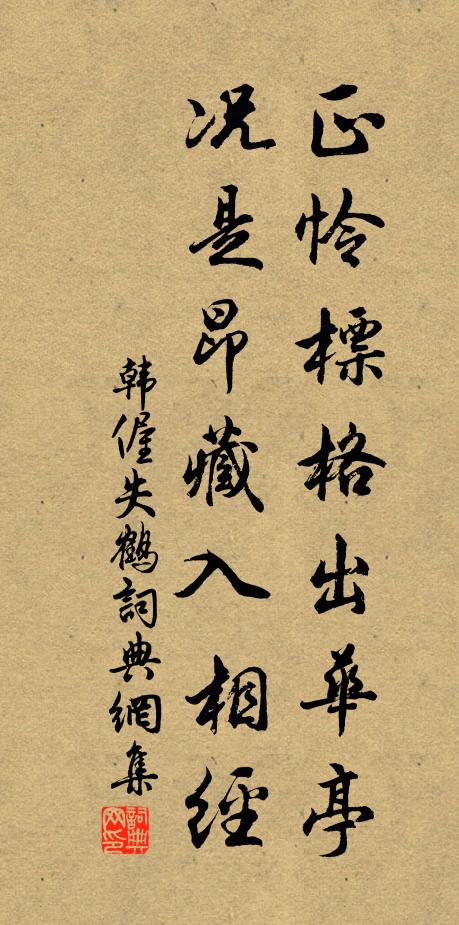 正怜標格出華亭
况是昂藏入相經
韩偓失鶴詞典網集
詞典网印